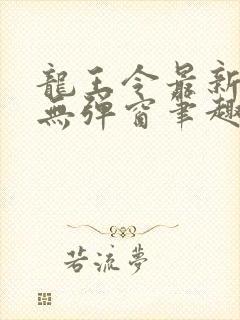 龍王令最新
無彈窗筆趣
若流夢